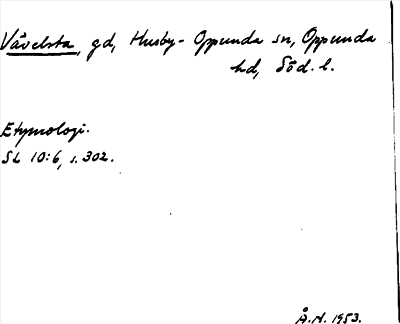 Vävelsta, gd, Husby-Oppunda sn, Oppunda
hd, Söd. l.
Etymologi.
SL 10:6, s. 302.
Å.N. 1953.